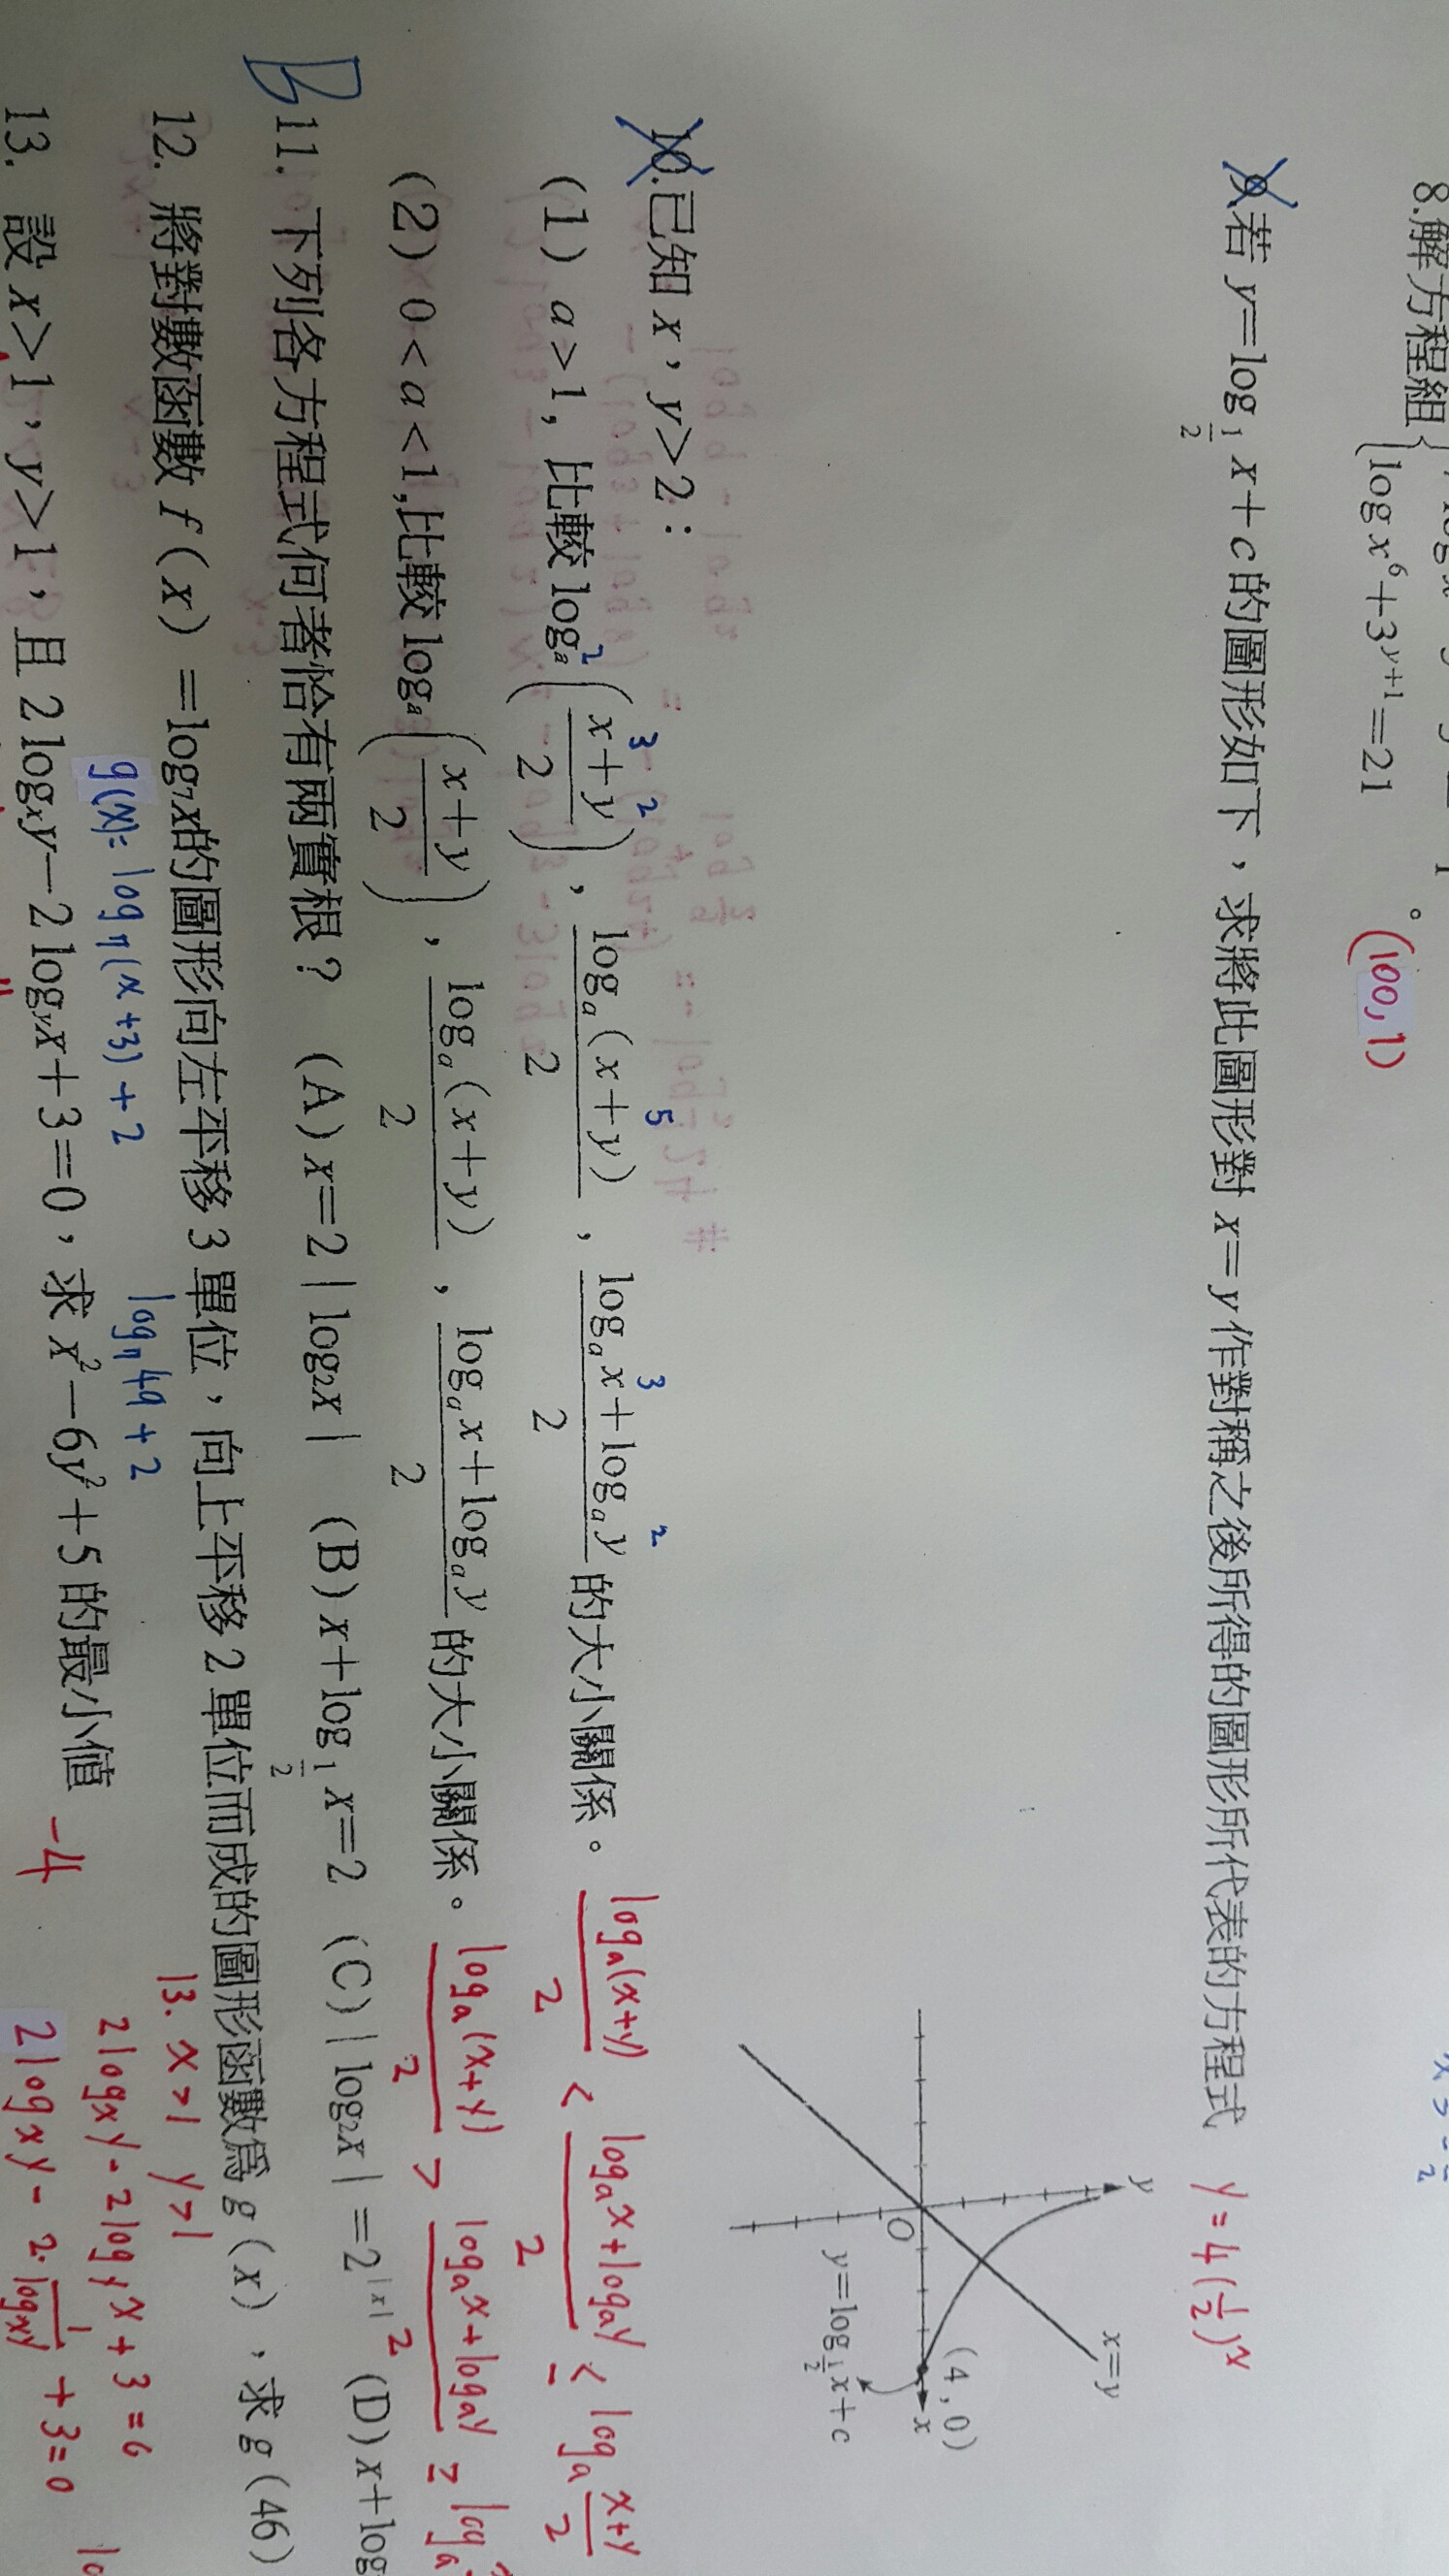 8.解方程組
log x⁶+3ʸ⁺¹=21 。 (100,1)
9.若 y=log_{1/2} x+c 的圖形如下，求將此圖形對 x=y 作對稱之後所得的圖形所代表的方程式 y=4(1/2)ˣ
y
x=y
(4,0)
O
x
y=log_{1/2} x+c
10.已知 x，y>2：
3 2 5 3 2
(1) a>1, 比較 log_a((x+y)/2)，log_a(x+y)/2，(log_a x+log_a y)/2 的大小關係。 log_a(x+y)/2 < (log_a x+log_a y)/2 ≤ log_a (x+y)/2
(2) 0<a<1,比較 log_a((x+y)/2)，log_a(x+y)/2，(log_a x+log_a y)/2 的大小關係。 log_a(x+y)/2 > (log_a x+log_a y)/2 ≥ log_a
B 11. 下列各方程式何者恰有兩實根？ (A) x=2|log₂x| (B) x+log_{1/2} x=2 (C)|log₂x|=2^{|x|} 2 (D) x+log
12. 將對數函數 f(x)=log₇x的圖形向左平移 3 單位，向上平移 2 單位而成的圖形函數為 g(x)，求 g(46)
g(x)= log₇(x+3)+2 log₇49+2
13. 設 x>1，y>1，且 2 logₓy－2 log_y x+3=0，求 x²－6y²+5 的最小值 -4
13. x>1 y>1
2logₓy-2log_y x+3=6
2logₓy-2·1/logₓy+3=0